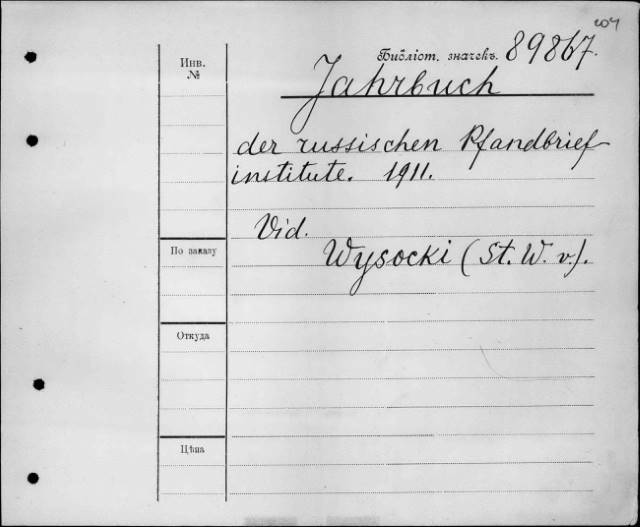 204
Библіот. значекъ. 89867.
Инв.
№
Jahrbuch
der russischen Pfandbrief-
institute. 1911.
Vid.
По заказу
Wysocki (St. W. v.).
Откуда
Цѣна